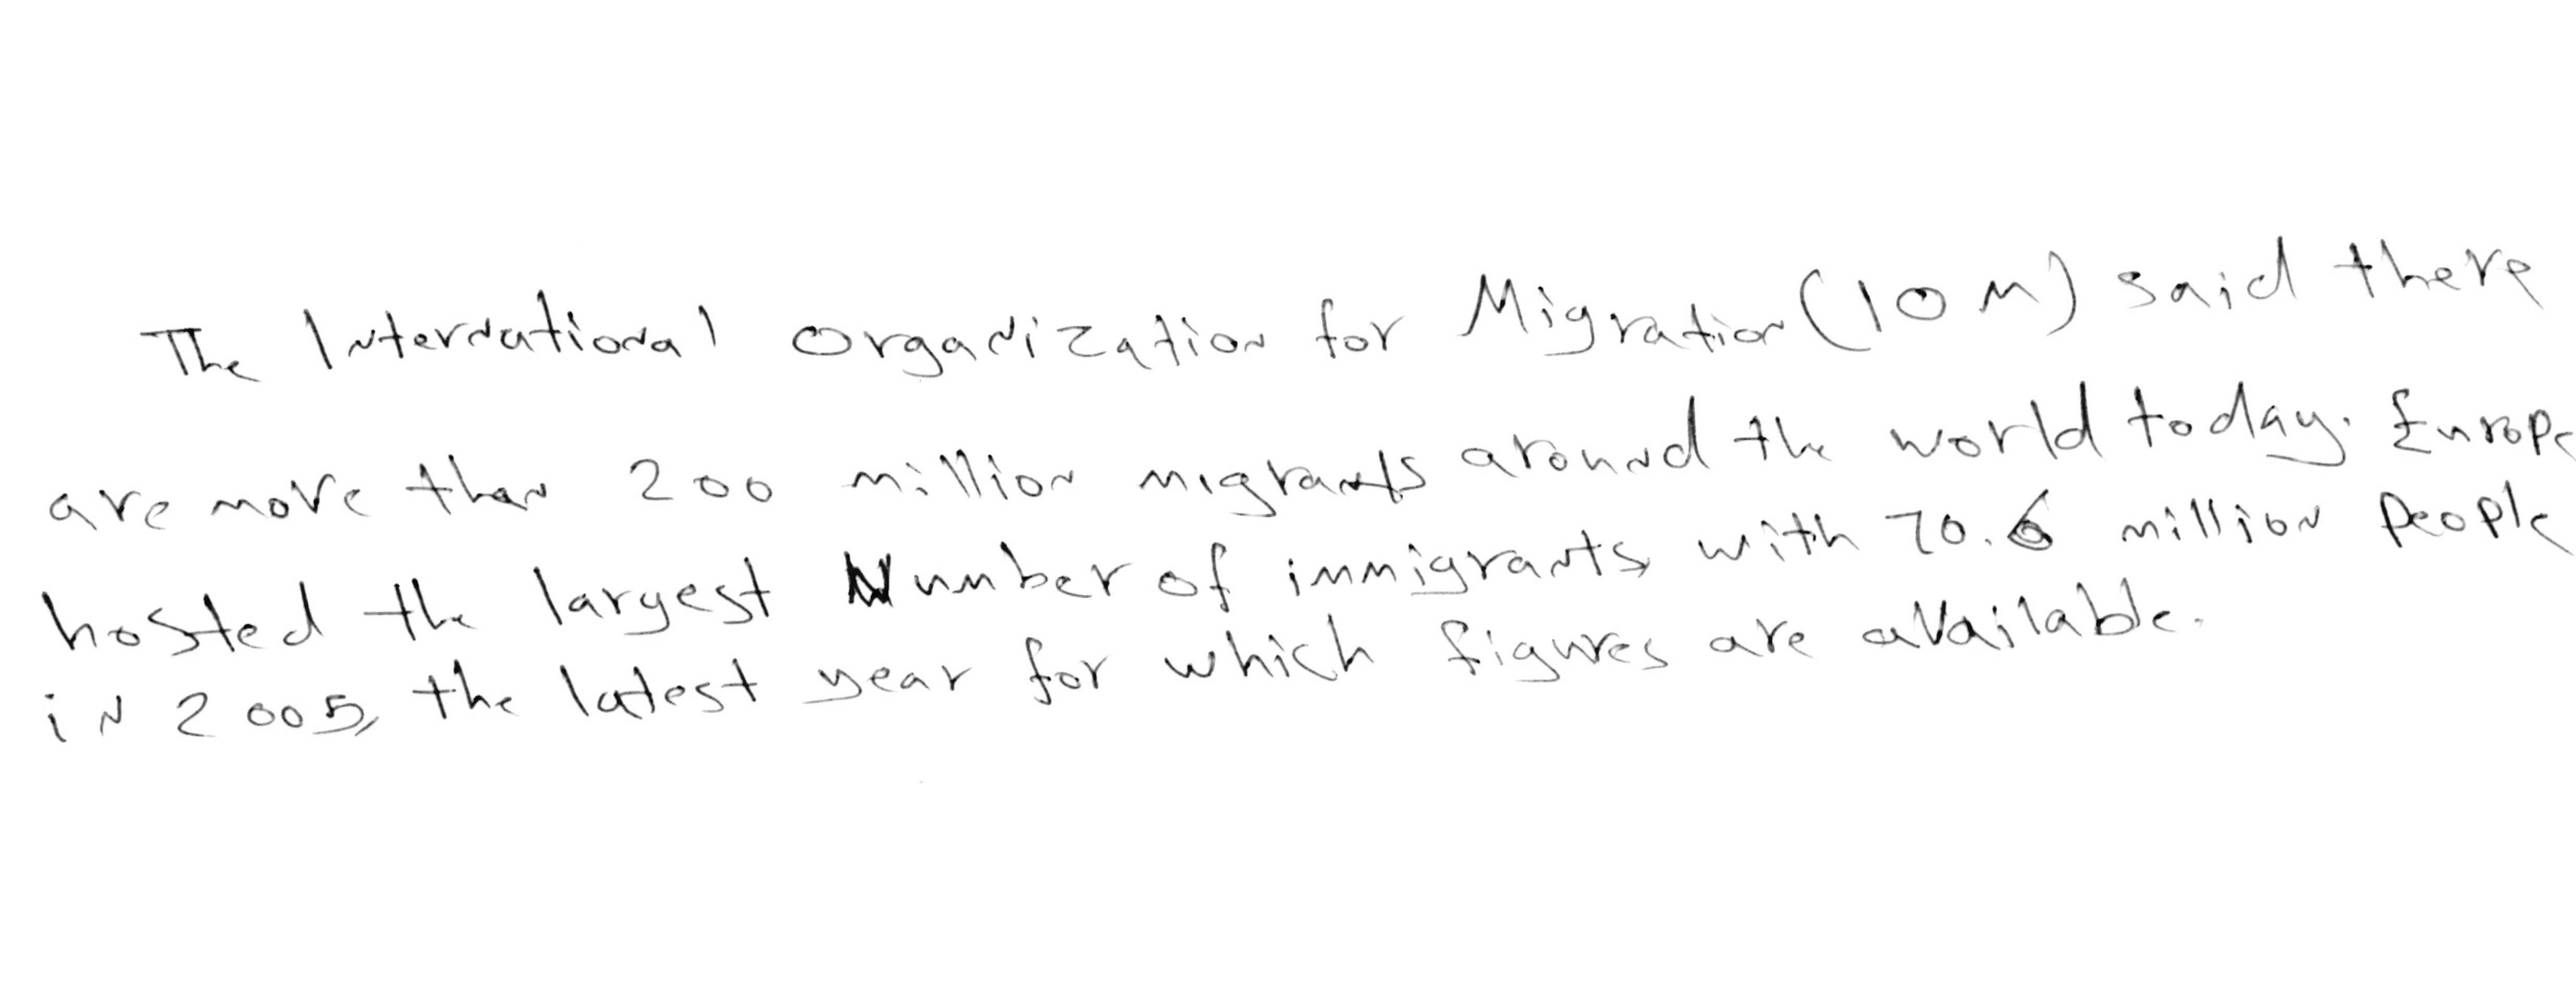 The International Organization for Migration (IOM) said there
are more than 200 million migrants around the world today. Europe
hosted the largest Number of immigrants, with 70.6 million people
in 2005, the latest year for which figures are available.